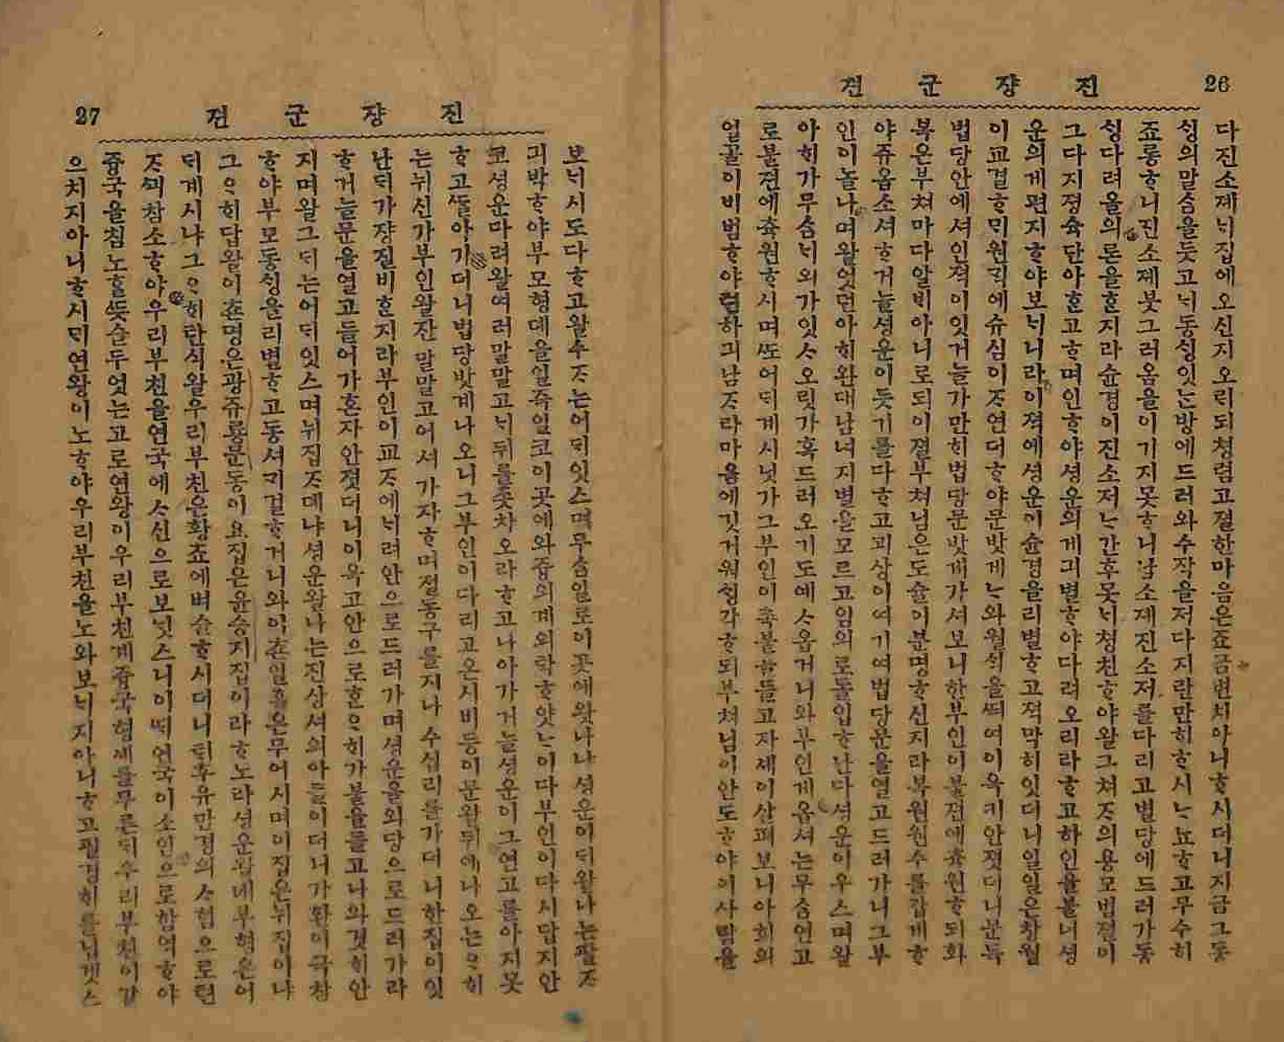 26 진쟝군젼
다진소졔ᄂᆡ집에오신지오ᄅᆡ되쳥렴고졀한마음은죠금변치아니ᄒᆞ시더니지금그동
ᄉᆡᆼ의말ᄉᆞᆷ을듯고ᄂᆡ동ᄉᆡᆼ잇ᄂᆞᆫ방에드러와수작을져다지란만히ᄒᆞ시ᄂᆞ뇨ᄒᆞ고무수히
죠롱ᄒᆞ니진소졔붓그러옴을이기지못ᄒᆞ니남소졔진소져를다리고별당에드러가동
ᄉᆡᆼ다려올의론을ᄒᆞᆫ지라슌경이진소져ᄂᆞ간후못ᄂᆡ쳥친ᄒᆞ야왈그쳐ᄌᆞ의용모범졀이
그다지졍슉단아ᄒᆞᆫ고ᄒᆞ며인ᄒᆞ야셩운의게긔별ᄒᆞ야다려오리라ᄒᆞ고하인을불너셩
운의게편지ᄒᆞ야보ᄂᆡ니라이젹에셩운이슌경을리별ᄒᆞ고젹막히잇더니일일은창월
이교결ᄒᆞᄆᆡ원ᄀᆡᆨ에슈심이ᄌᆞ연더ᄒᆞ야문밧게ᄂᆞ와월ᄉᆡᆨ을ᄯᅴ여이윽키안졋더니문득
법당안에셔인젹이잇거늘가만히법당문밧게가셔보니한부인이불젼에츅원ᄒᆞ되화
복은부쳐마다알비아니로되이졀부쳐님은도슐이분명ᄒᆞ신지라복원원수를갑게ᄒᆞ
야쥬옵소셔ᄒᆞ거늘셩운이듯기를다ᄒᆞ고괴상이여기여법당문을열고드러가니그부
인이놀나며왈엇던아ᄒᆡ완대남녀지별을모르고임의로돌입ᄒᆞ난다셩운이우스며왈
아ᄒᆡ가무ᄉᆞᆷᄂᆡ외가잇ᄉᆞ오릿가혹드러오기도예ᄉᆞ옵거니와부인게옵셔는무ᄉᆞᆷ연고
로불젼에츅원ᄒᆞ시며ᄯᅩ어ᄃᆡ계시넛가그부인이촉불을들고자셰이살펴보니아ᄒᆡ의
얼골이비범ᄒᆞ야렴하괴남ᄌᆞ라마음에깃거워ᄉᆡᆼ각ᄒᆞ되부쳐님이안도ᄒᆞ야이사람을
진쟝군젼 27
보ᄂᆡ시도다ᄒᆞ고왈수ᄌᆞ는어ᄃᆡ잇스며무ᄉᆞᆷ일로이곳에왓나냐셩운이ᄃᆡ왈나는팔ᄌᆞ
긔박ᄒᆞ야부모형뎨을일즉일코이곳에와즁의게의탁ᄒᆞ얏ᄂᆞ이다부인이다시답지안
코셩운다려왈여러말말고ᄂᆡ뒤를ᄶᅩᆺ차오라ᄒᆞ고나아가거늘셩운이그연고를아지못
ᄒᆞ고ᄯᆞᆯ아가더니법당밧게나오니그부인이다리고온시비등이문왈뒤에나오는ᄋᆞᄒᆡ
는뉘신가부인왈잔말말고어셔가자ᄒᆞ며졀동구를지나수십리를가더니한집이잇
난ᄃᆡ가쟝졀비ᄒᆞᆫ지라부인이교ᄌᆞ에ᄂᆡ려안으로드러가며셩운을외당으로드러가라
ᄒᆞ거늘문을열고들어가혼자안졋더니이윽고안으로ᄒᆞᆫᄋᆞᄒᆡ가불을들고나와것ᄒᆡ안
지며왈그ᄃᆡ는어ᄃᆡ잇스며뉘집ᄌᆞ뎨냐셩운왈나는진상셔의아들이더니가환이극참
ᄒᆞ야부모동ᄉᆡᆼ을리별ᄒᆞ고동셔ᄀᆡ걸ᄒᆞ거니와이ᄌᆡ일흠은무어시며이집은뉘집이냐
그ᄋᆞᄒᆡ답왈이ᄌᆡ명은광쥬룡문동이요집은윤승지집이라ᄒᆞ노라셩운왈네부형은어
ᄃᆡ계시냐그ᄋᆞᄒᆡ탄식왈우리부친은황죠에벼슬ᄒᆞ시더니ᄃᆡ후유만경의ᄉᆞ혐으로련
ᄌᆞᄭᅴ참소ᄒᆞ야우리부친을연국에ᄉᆞ신으로보ᄂᆡᆺ스니이ᄯᆡ연국이소인으로참역ᄒᆞ야
즁국을침노ᄒᆞᆯᄯᅳᆺ슬두엇는고로연왕이우리부친게즁국형셰를무른ᄃᆡ우리부친이갈
으치지아니ᄒᆞ시ᄆᆡ연왕이노ᄒᆞ야우리부친을노와보ᄂᆡ지아니ᄒᆞ고